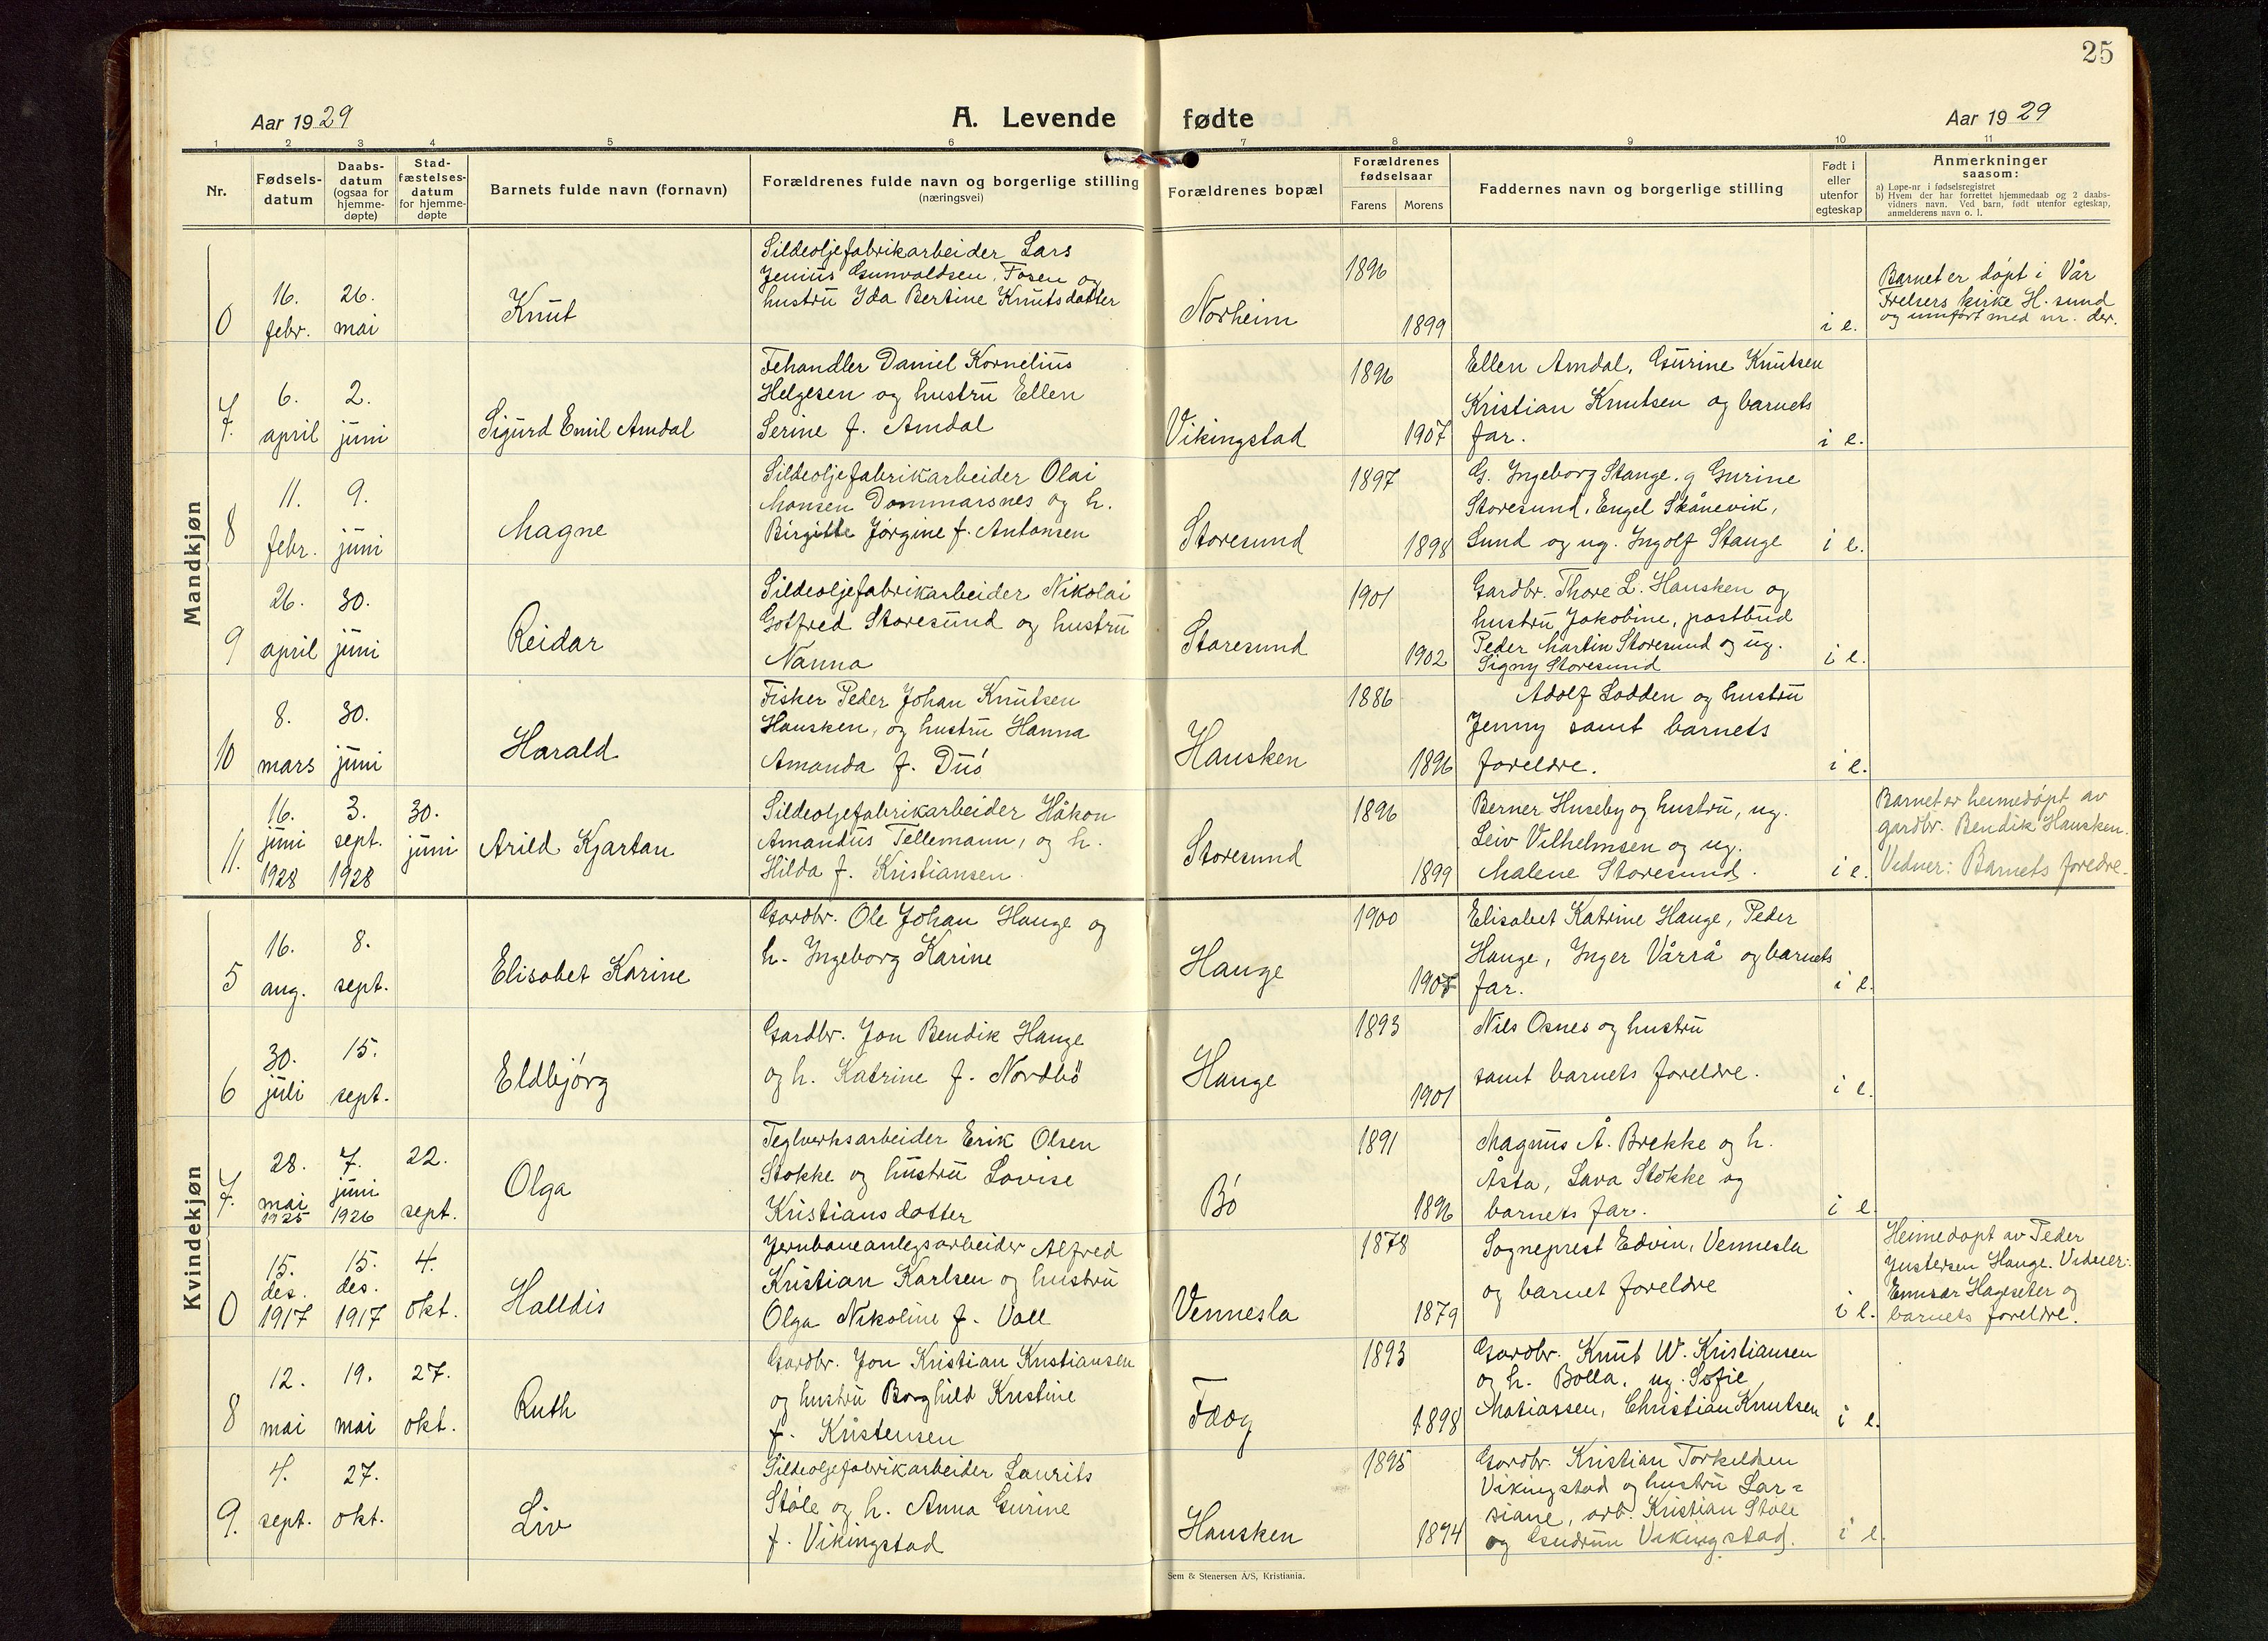 25
Aar 1929
A. Levende fødte
Aar 1929
1 2 3 4 5 6 7 8 9 10 11
Nr.
Fødsels-
datum
Daabs-
datum
(ogsaa for
hjemme-
døpte)
Stad-
fæstelses-
datum
for hjemme-
døpte
Barnets fulde navn (fornavn)
Forældrenes fulde navn og borgerlige stilling
(næringsvei)
Forældrenes bopæl
Forældrenes
fødselsaar
Farens Morens
Faddernes navn og borgerlige stilling
Født i
eller
utenfor
egteskap
Anmerkninger
saasom:
a) Løpe-nr i fødselsregistret
b) Hvem der har forrettet hjemmedaab og 2 daabs-
vidners navn. Ved barn, født utenfor egteskap,
anmelderens navn o. l.
Mandkjøn
0
16.
febr.
26.
mai
Knut
Sildeoljefabrikarbeider Lars
Jenius Gunvaldsen, Fosen og
hustru Yda Bertine Knutsdatter
Norheim
1896
1899
i e.
Barnet er døpt i Vår
Frelsers kirke H.sund
og innført med nr. der.
7.
6.
april
2.
juni
Sigurd Emil Amdal
Fehandler Daniel Kornelius
Helgesen og hustru Ellen
Serine f. Amdal
Vikingstad
1896
1907
Ellen Amdal, Gurine Knutsen
Kristian Knutsen og barnets
far.
i e.
8
11.
febr.
9.
juni
Magne
Sildeoljefabrikarbeider Olai
Monsen Dommarsnes og h.
Birgitte Jørgine f. Antonsen
Storesund
1897
1898
G. Ingeborg Stange. g Gurine
Storesund, Engel Skånevik,
Sund og ug. Ingolf Stange
i e.
9
26.
april
30.
juni
Reidar
Sildeoljefabrikarbeider Nikolai
Gotfred Storesund og hustru
Nanna
Storesund
1901
1902
Gardbr. Thore L. Hausken og
hustru Jakobine, postbud
Peder Martin Storesund og ug.
Signy Storesund
i e.
10
8.
mars
30.
juni
Harald
Fisker Peder Johan Knutsen
Hausken, og hustru Hanna
Amanda f. Dus
Hausken
1886
1896
Adolf Lodden og hustru
Jenny samt barnets
foreldre.
i e.
11.
16.
juni
1928
3.
sept.
1928
30.
juni
Arild Kjartan
Sildeoljefabrikarbeider Håkon
Amandus Tellemann, og h.
Hilda f. Kristiansen
Storesund
1896
1899
Berner Huseby og hustru, ug.
Leiv Vilhelmsen og ug.
Malene Storesund.
i e.
Barnet er heimedøpt av
gardbr. Bendik Hausken.
Vidner: Barnets foredre.
Kvindekjøn
5
16.
aug.
8.
sept.
Elisabet Karine
Gardbr. Ole Johan Hauge og
h. Ingeborg Karine
Hauge
1900
Elisabet Katrine Hauge, Peder
Hauge, Inger Vårrå og barnets
far.
i e.
6
30.
juli
15.
sept.
Eldbjørg
Gardbr. Jon Bendik Hauge
og h. Katrine f. Nordbö
Hauge
1893
1901
Nils Osnes og hustru
samt barnets foreldre.
i e.
7.
28.
mai
1925
7.
juni
1926
22.
sept.
Olga
Teglverksarbeider Erik Olsen
Stokke og hustru Lovise
Kristiansdatter
Bö
1891
1896
Magnus Å. Brekke og h.
Åsta, Lava Stokke og
barnets far.
i e
0
15.
des.
1917
15.
des.
1917
4.
okt.
Halldis
Jernbaneanlegsarbeider Alfred
Kristian Karlsen og hustru
Olga Nikoline f. Voll
Vennesla
1878
1879
Sogneprest Edvin, Vennesla
og barnet foreldre
i e.
Heimedøpt av Peder
Justersen Hauge. Vidner:
Hageseter og
barnets foreldre.
8
12.
mai
19.
mai
27.
okt.
Ruth
Gardbr. Jon Kristian Kristiansen
og hustru Borghild Kristine
f. Kristensen
Fæøy
1893
1898
Gardbr. Knut W. Kristiansen
og h. Bolla, ug. Sofie
Matiassen, Christian Knutsen
i e.
9.
4.
sept.
27.
okt.
Liv
Sildeoljefabrikarbeider Laurits
Støle og h. Anna Gurine
f. Vikingstad
Hausken
1895
1894
Gardbr. Kristian Torkeldsen
Vikingstad og hustru Lar=
siane, arb. Kristian Støle
og Gudrun Vikingstad.
i e.
Sem & Stenersen A/S, Kristiania.